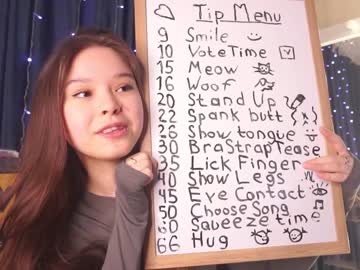 Tip Menu
9 Smile
10 Vote Time
15 Meow
16 Woof
20 Stand Up
22 Spank butt
26 Show tongue
30 Bra Strap Tease
35 Lick Finger
40 Show Legs
45 Eye Contact
50 Choose Song
60 Squeeze time
66 Hug